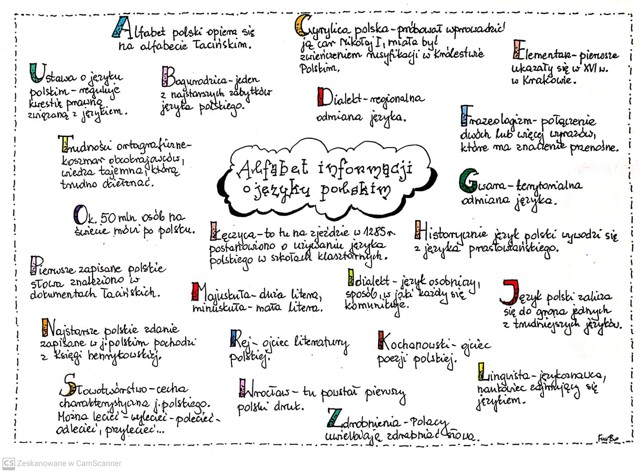 Alfabet polski opiera się
na alfabecie łacińskim.
Cyrylica polska - próbował wprowadzić
ją car Mikołaj I, miała być
zwieńczeniem rusyfikacji w Królestwie
Polskim.
Elementarz - pierwsze
ukazały się w XVI w.
w Krakowie.
Ustawa o języku
polskim - reguluje
kwestię prawną
związaną z językiem.
Bogurodzica - jeden
z najstarszych zabytków
języka polskiego.
Dialekt - regionalna
odmiana języka.
Frazeologizm - połączenie
dwóch lub więcej wyrazów,
które ma znaczenie przenośne.
Trudności ortograficzne -
koszmar obcokrajowców,
wiedza tajemna, którą
trudno okiełznać.
Alfabet informacji
o języku polskim
Gwara - terytorialna
odmiana języka.
Ok. 50 mln osób na
świecie mówi po polsku.
Łęczyca - to tu na zjeździe w 1285 r.
postanowiono o używaniu języka
polskiego w szkołach klasztornych.
Historycznie język polski wywodzi się
z języka prasłowiańskiego.
Pierwsze zapisane polskie
słowa znaleziono w
dokumentach łacińskich.
Majuskuła - duża litera,
minuskuła - mała litera.
Idiolekt - język osobniczy,
sposób, w jaki każdy się
komunikuje.
Język polski zalicza
się do grona jednych
z trudniejszych języków.
Najstarsze polskie zdanie
zapisane w j. polskim pochodzi
z Księgi henrykowskiej.
Rej - ojciec literatury
polskiej.
Kochanowski - ojciec
poezji polskiej.
Lingwista - językoznawca,
naukowiec zajmujący się
językiem.
Słowotwórstwo - cecha
charakterystyczna j. polskiego.
Można lecieć - wylecieć - polecieć -
odlecieć, przylecieć...
Wrocław - tu powstał pierwszy
polski druk.
Zdrobnienia - Polacy
uwielbiają zdrabniać słowa.
CS Zeskanowane w CamScanner